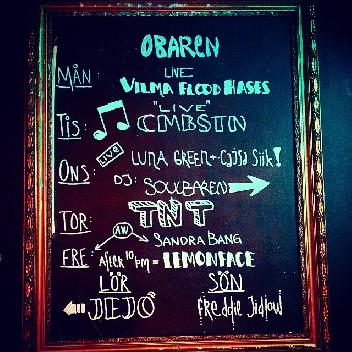 OBAREN
LIVE
MÅN: VILMA FLOOD HASES
"LIVE"
TIS: CMBSTN
LIVE
ONS: LUNA GREEN + Cajsa Siik!
DJ: SOULBAREN
TOR: TNT
AW
SANDRA BANG
FRE: AfteR 10 pm = LEMONFACE
LÖR SÖN
DEJO FReddie